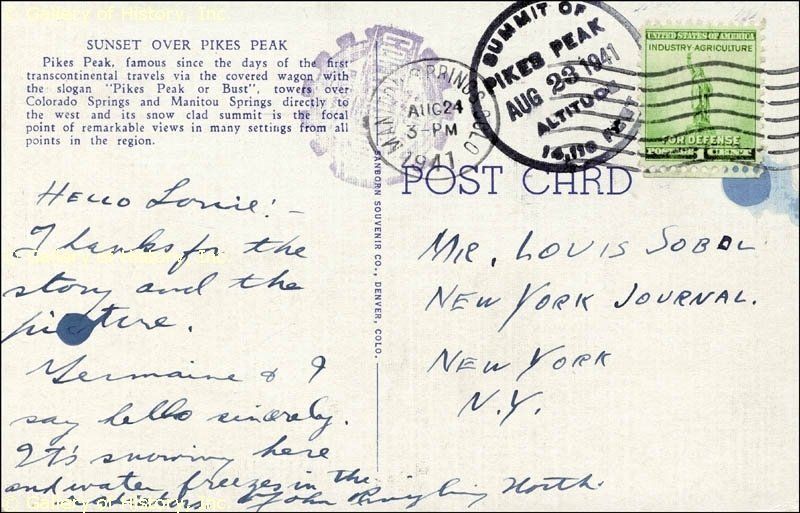 © Gallery of History, Inc.
SUNSET OVER PIKES PEAK
Pikes Peak, famous since the days of the first
transcontinental travels via the covered wagon with
the slogan "Pikes Peak or Bust", towers over
Colorado Springs and Manitou Springs directly to
the west and its snow clad summit is the focal
point of remarkable views in many settings from all
points in the region.
MANITOU SPRINGS COLO
AUG 24
3-PM
1941
SUMMIT OF
PIKES PEAK
AUG 23 1941
ALTITUDE
14,110 FEET
UNITED STATES OF AMERICA
INDUSTRY-AGRICULTURE
FOR DEFENSE
POSTAGE 1 CENT
POST CARD
SANBORN SOUVENIR CO., DENVER, COLO.
Hello Louie! -
Thanks for the
story and the
picture.
Germaine & I
say hello sincerely.
It's snowing here
and water freezes in the
John Ringling North.
MR. LOUIS SOBOL
NEW YORK JOURNAL.
NEW YORK
N.Y.
© Gallery of History, Inc.